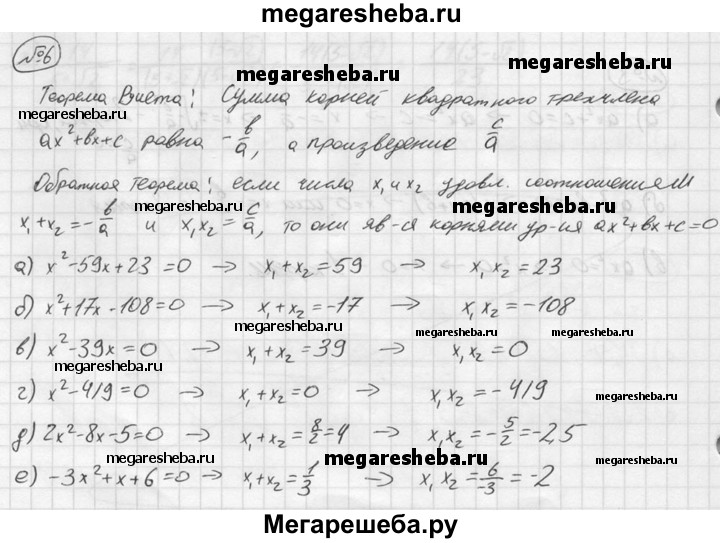 megaresheba.ru
№6
megaresheba.ru
megaresheba.ru
Теорема Виета: Сумма корней квадратного трехчлена
megaresheba.ru
ax²+bx+c равна -b/a, а произведение c/a
Обратная теорема: если числа x₁ и x₂ удовл. соотношениям
megaresheba.ru
megaresheba.ru
x₁+x₂=-b/a и x₁x₂=c/a, то они яв-ся корнями ур-ия ax²+bx+c=0
а) x²-59x+23=0 → x₁+x₂=59 → x₁x₂=23
б) x²+17x-108=0 → x₁+x₂=-17 → x₁x₂=-108
megaresheba.ru
megaresheba.ru
megaresheba.ru
в) x²-39x=0 → x₁+x₂=39 → x₁x₂=0
megaresheba.ru
г) x²-419=0 → x₁+x₂=0 → x₁x₂=-419
megaresheba.ru
д) 2x²-8x-5=0 → x₁+x₂=8/2=4 → x₁x₂=-5/2=-2,5
megaresheba.ru
megaresheba.ru
е) -3x²+x+6=0 → x₁+x₂=1/3 → x₁x₂=6/-3=-2
megaresheba.ru
Мегарешеба.ру